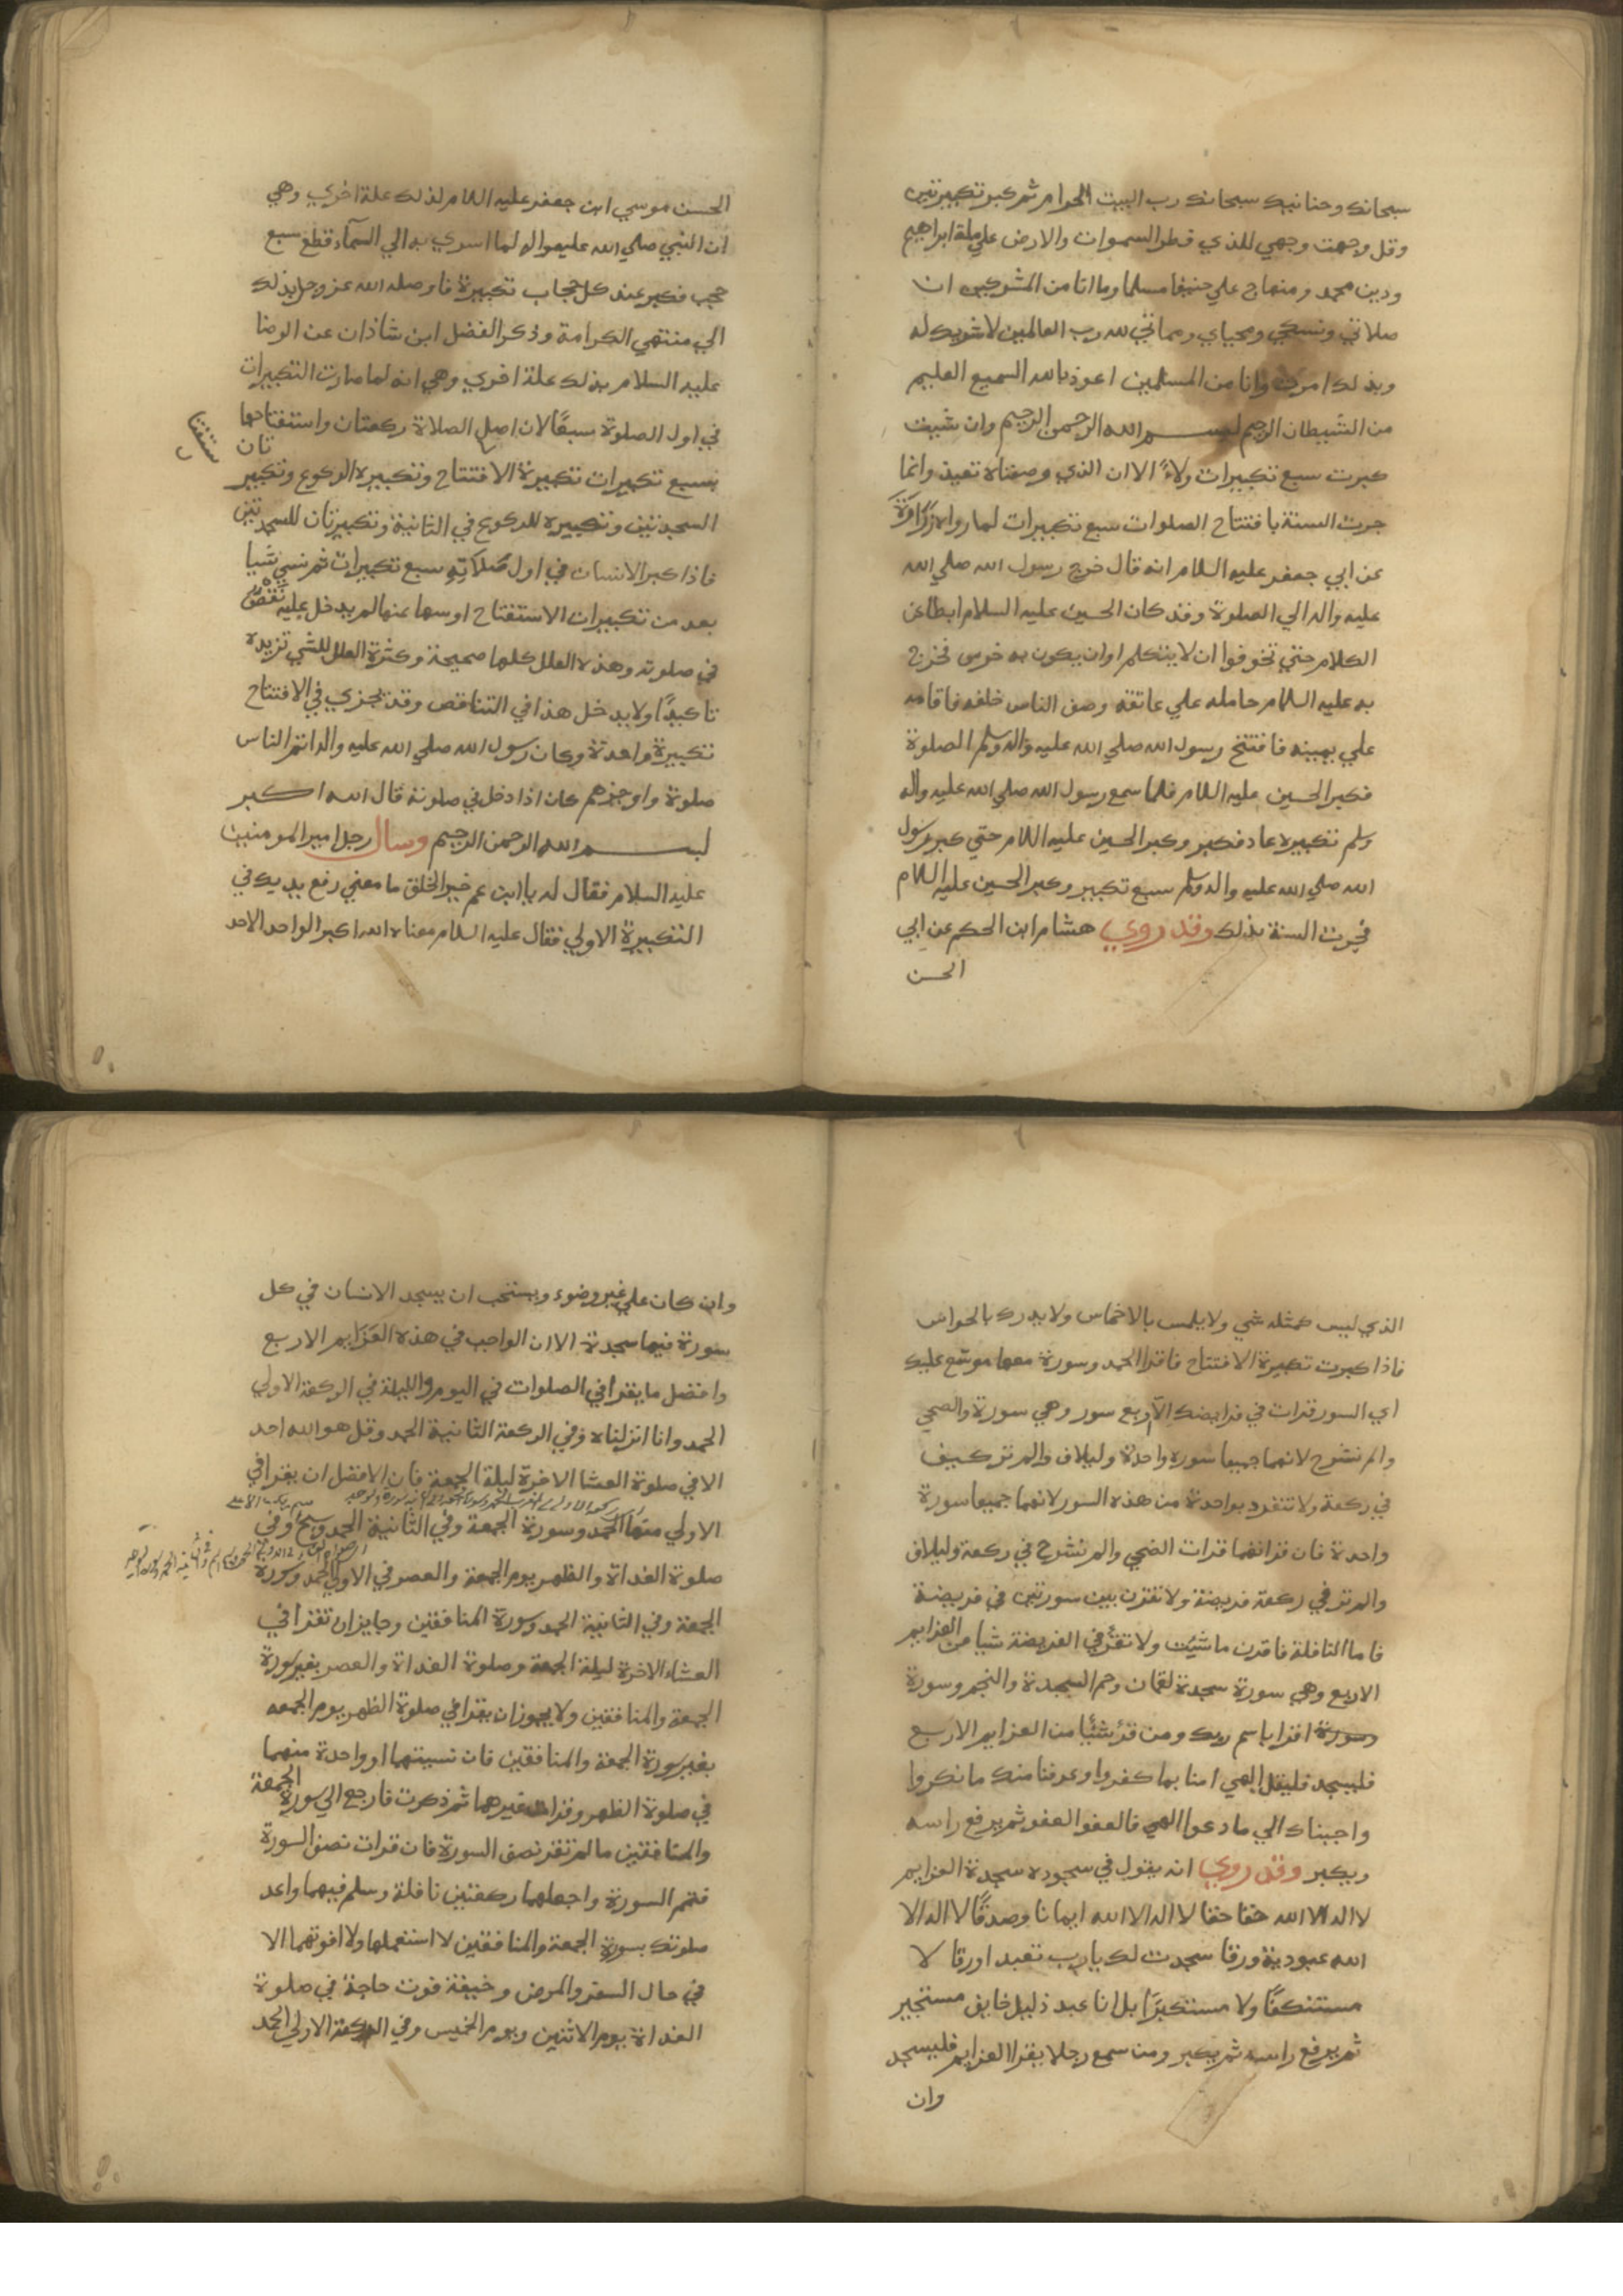 سبحانك وحنانيك سبحانك رب البيت الحرام ثم كبر تكبيرتين
وقل وجهت وجهي للذي فطر السموات والارض علي ملة ابراهيم
ودين محمد ومنهاج علي حنيفا مسلما وما انا من المشركين ان
صلاتي ونسكي ومحياي ومماتي لله رب العالمين لا شريك له
وبذلك امرت وانا من المسلمين اعوذ بالله السميع العليم
من الشيطان الرجيم بسم الله الرحمن الرحيم وان شيت
كبرت سبع تكبيرات ولاءً الا ان الذي وصفناه تعبد وانما
جرت السنة بافتتاح الصلوات سبع تكبيرات لما رواه زرارة
عن ابي جعفر عليه السلام انه قال خرج رسول الله صلي الله
عليه واله الي الصلوة وقد كان الحسين عليه السلام ابطا عن
الكلام حتي تخوفوا ان لا يتكلم اوان يكون به خرس فخرج
به عليه السلام حامله علي عاتقه وصف الناس خلفه فاقامه
علي يمينه فافتتح رسول الله صلي الله عليه واله وسلم الصلوة
فكبر الحسين عليه السلام فلما سمع رسول الله صلي الله عليه واله
وسلم تكبيره عاد فكبر وكبر الحسين عليه السلام حتي كبر رسول
الله صلي الله عليه واله وسلم سبع تكبير وكبر الحسين عليه السلام
فجرت السنة بذلك وقد روي هشام ابن الحكم عن ابي
الحسن
الحسن موسي ابن جعفر عليه السلام لذلك علة اخري وهي
ان النبي صلي الله عليه واله لما اسري به الي السمآء قطع سبع
حجب فكبر عند كل حجاب تكبيرة فاوصله الله عز وجل بذلك
الي منتهي الكرامة وذكر الفضل ابن شاذان عن الرضا
عليه السلام بذلك علة اخري وهي انه لما صارت التكبيرات
في اول الصلوة سبعًا لان اصل الصلاة ركعتان واستفتاحهما
تان
بسبع تكبيرات تكبيرة الافتتاح وتكبيره الركوع وتكبير
السجدتين وتكبيره للركوع في الثانية وتكبيرتان للسجدتين
فاذا كبر الانسان في اول صلاته سبع تكبيرات ثم نسي شيا
بعد من تكبيرات الاستفتاح اوسها عنها لم يدخل عليه نقص
في صلوته وهذه العلل كلها صحيحة وكثرة العلل للشي تزيده
تاكيدًا ولا يدخل هذا في التناقض وقد يجزي في الافتتاح
تكبيرة واحدة وكان رسول الله صلي الله عليه واله اتم الناس
صلوة واوجزهم كان اذا دخل في صلوته قال الله اكبر
بسم الله الرحمن الرحيم وسال رجل امير المومنين
عليه السلام فقال له يا ابن عم خير الخلق ما معني رفع يديك في
التكبيرة الاولي فقال عليه السلام معناه الله اكبر الواحد الاحد
الذي ليس كمثله شي ولا يلمس بالاخماس ولا يدرك بالحواس
فاذا كبرت تكبيرة الافتتاح فاقرا الحمد وسورة معها موسّع عليك
اي السور قرات في فرايضك الّا اربع سور وهي سورة والضحي
والم نشرح لانهما جميعا سوره واحدة ولئلاف والم تر كيف
في ركعة ولا تنفرد بواحدة من هذه السور لانهما جميعا سورة
واحدة فان قراتهما قرات الضحي والم نشرح في ركعة ولئلاف
والم تر في ركعة فريضة ولا تقرن بين سورتين في فريضة
فاما النافلة فاقرن ما شيت ولا تقرٲ في الفريضة شيا من العزايم
الاربع وهي سورة سجدة لقمان وحم السجدة والنجم وسورة
وسورة اقرا باسم ربك ومن قرٲ شئيا من العزايم الاربع
فليسجد فليقل الهي امنا بما كفروا وعرفنا منك ما نكروا
واجبناك الي ما دعوا الهي فالعفو العفو ثم يرفع راسه
ويكبر وقد روي انه يقول في سجوده سجدة العزايم
لا اله الا الله حقا حقا لا اله الا الله ايمانا وصدقًا لا اله الا
الله عبودية ورقا سجدت لك يا رب تعبد اورقا لا
مستنكفًا ولا مستكبرًا بل انا عبد ذليل خايف مستجير
ثم يرفع راسه ثم يكبر ومن سمع رجلا يقرا العزايم فليسجد
وان
وان كان علي غير وضوء ويستحب ان يسجد الانسان في كل
سورة فيها سجدة الا ان الواجب في هذه العزايم الاربع
وافضل ما يقرا في الصلوات في اليوم والليلة في الركعة الاولي
الحمد وانا انزلناه وفي الركعة الثانية الحمد وقل هو الله احد
الا في صلوة العشا الاخرة ليلة الجمعة فان الافضل ان يقرا في
الاولي منها الحمد وسورة الجمعة وفي الثانية الحمد وسبح وفي
صلوة الغداة والظهر يوم الجمعة والعصر في الاولي الحمد وسورة
الجمعة وفي الثانية الحمد وسورة المنافقين وجايز ان تقرا في
العشاء الاخرة ليلة الجمعة وصلوة الغداة والعصر بغير سورة
الجمعة والمنافقين ولا يجوز ان يقرا في صلوة الظهر يوم الجمعه
بغير سورة الجمعة والمنافقين فان نسيتهما او واحدة منهما
في صلوة الظهر وقرات غيرهما ثم ذكرت فارجع الي سورة الجمعة
والمنافقين ما لم تقر نصف السورة فان قرات نصف السورة
فتمم السورة واجعلهما ركعتين نافلة وسلم فيهما واعد
صلوتك بسورة الجمعة والمنافقين لا استعملها ولا افوتهما الا
في حال السفر والمرض وخيفة فوت حاجة في صلوة
الغداة يوم الاثنين ويوم الخميس وفي الركعة الاولي الحمد